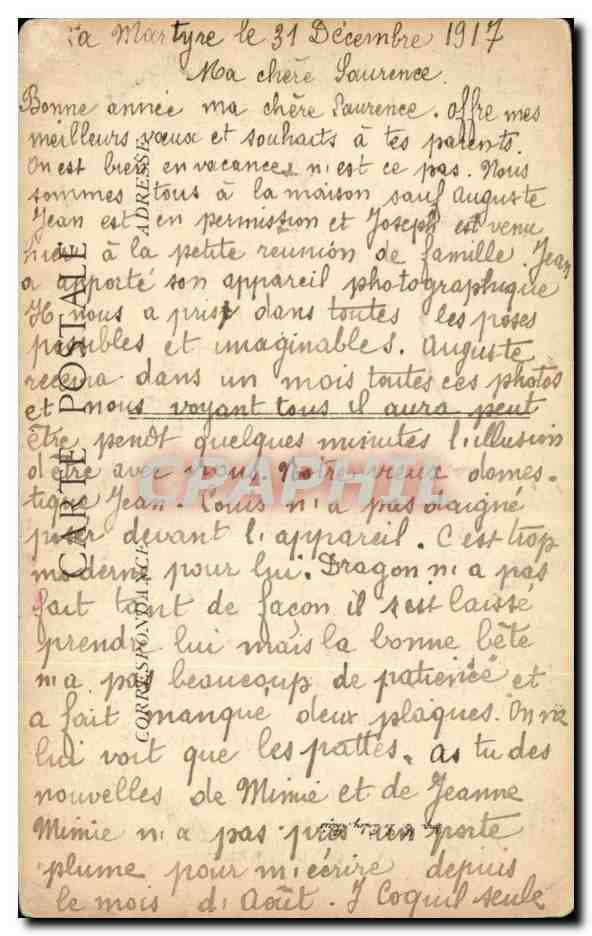 La Martyre le 31 Décembre 1917
Ma chère Laurence.
Bonne année ma chère Laurence. Offre mes
meilleurs vœux et souhaits à tes parents.
On est bien en vacances n'est ce pas. Nous
sommes tous à la maison sauf Auguste
Jean est en permission et Joseph est venu
hier à la petite reunion de famille. Jean
a apporté son appareil photographique
Il nous a pris dans toutes les poses
possibles et imaginables. Auguste
recevra dans un mois toutes ces photos
et nous voyant tous il aura peut
être pendt quelques minutes l'illusion
d'être avec nous. Notre vieux domes-
tique Jean-Louis n'a pas daigné
poser devant l'appareil. C'est trop
moderne pour lui. Dragon n'a pas
fait tant de façon il s'est laissé
prendre lui mais la bonne bête
n'a pas beaucoup de patience et
a fait manqué deux plaques. On ne
lui voit que les pattes. As tu des
nouvelles de Mimie et de Jeanne
Mimie n'a pas pris un porte
plume pour m'écrire depuis
le mois d'Août. J Coquil seule
CARTE POSTALE
CORRESPONDANCE
ADRESSE
CPAPHIL